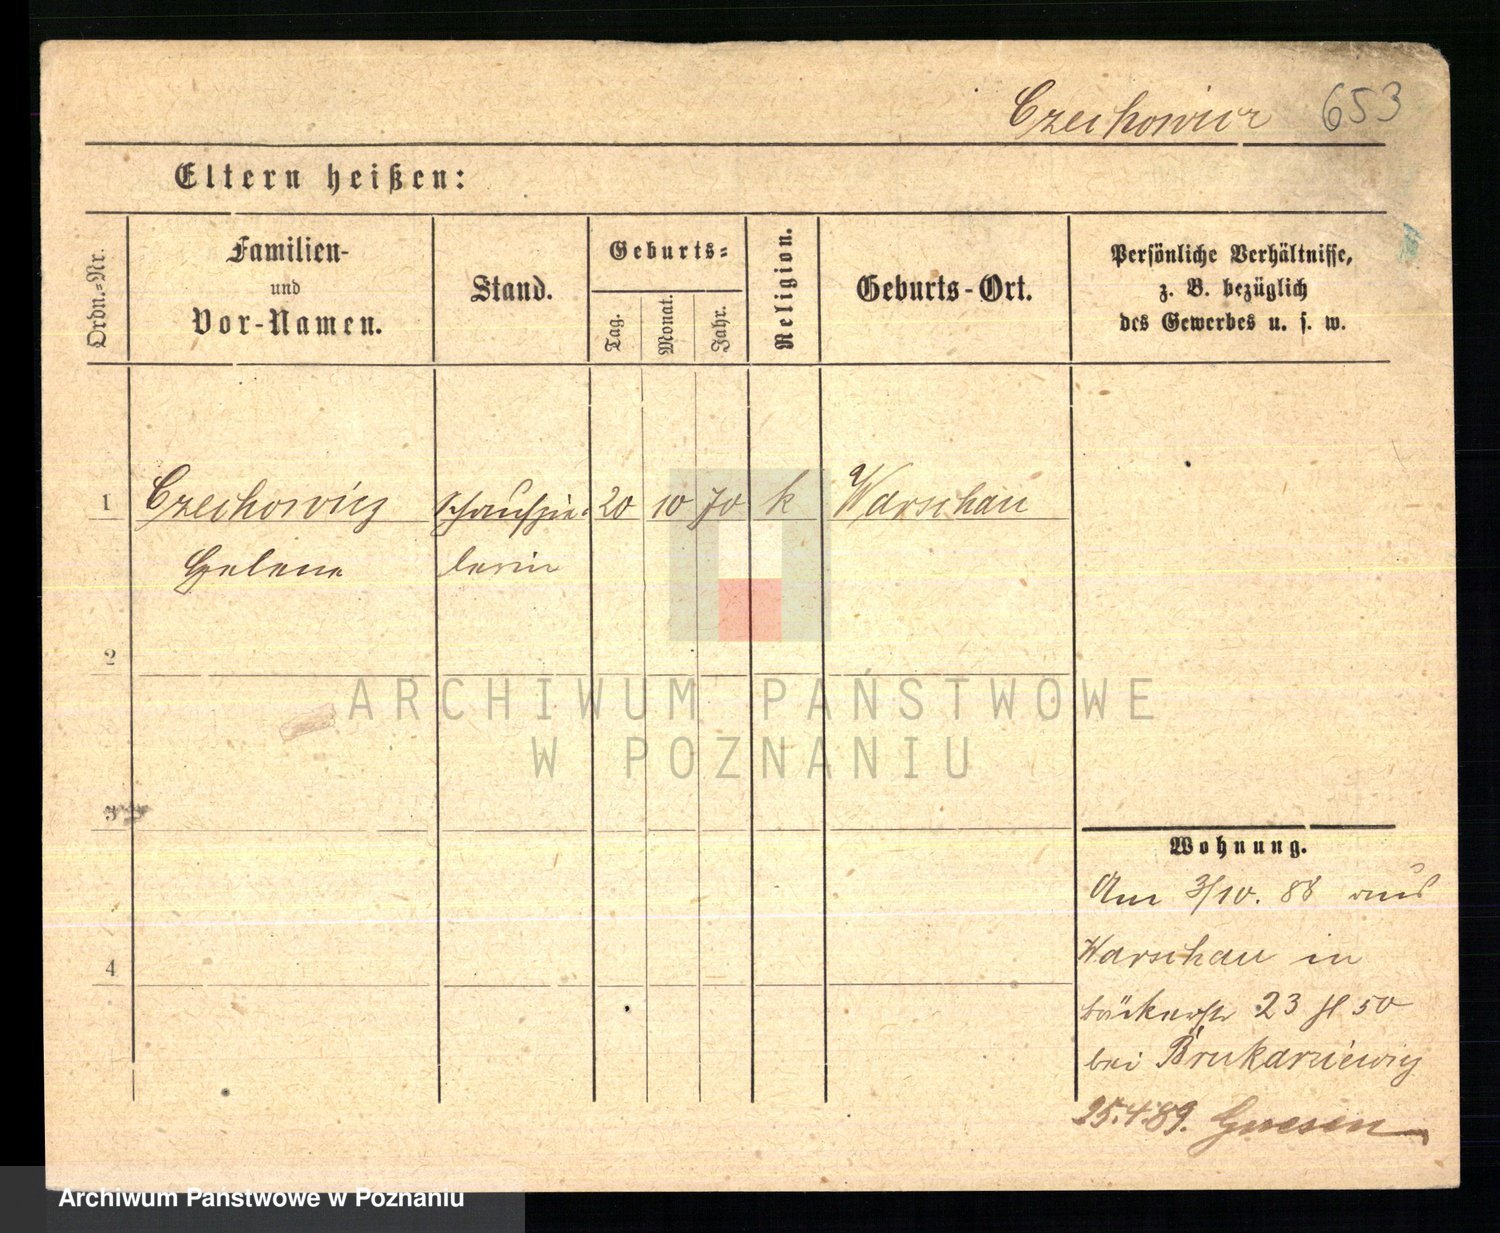 Czechowicz 653
Eltern heißen:
Ordn.-Nr.
Familien-
und
Vor-Namen.
Stand.
Geburts-
Tag.
Monat.
Jahr.
Religion.
Geburts-Ort.
Persönliche Verhältnisse,
z. B. bezüglich
des Gewerbes u. s. w.
1 Czechowicz Schauspie- 20 10 70 k Warschau
Helene lerin
2
ARCHIWUM PAŃSTWOWE
W POZNANIU
3
Wohnung.
Am 3/10. 88 aus
Warschau in
4
Bäckerstr 23 50
bei Brukarziewicz
25.4.89. Gnesen
Archiwum Państwowe w Poznaniu